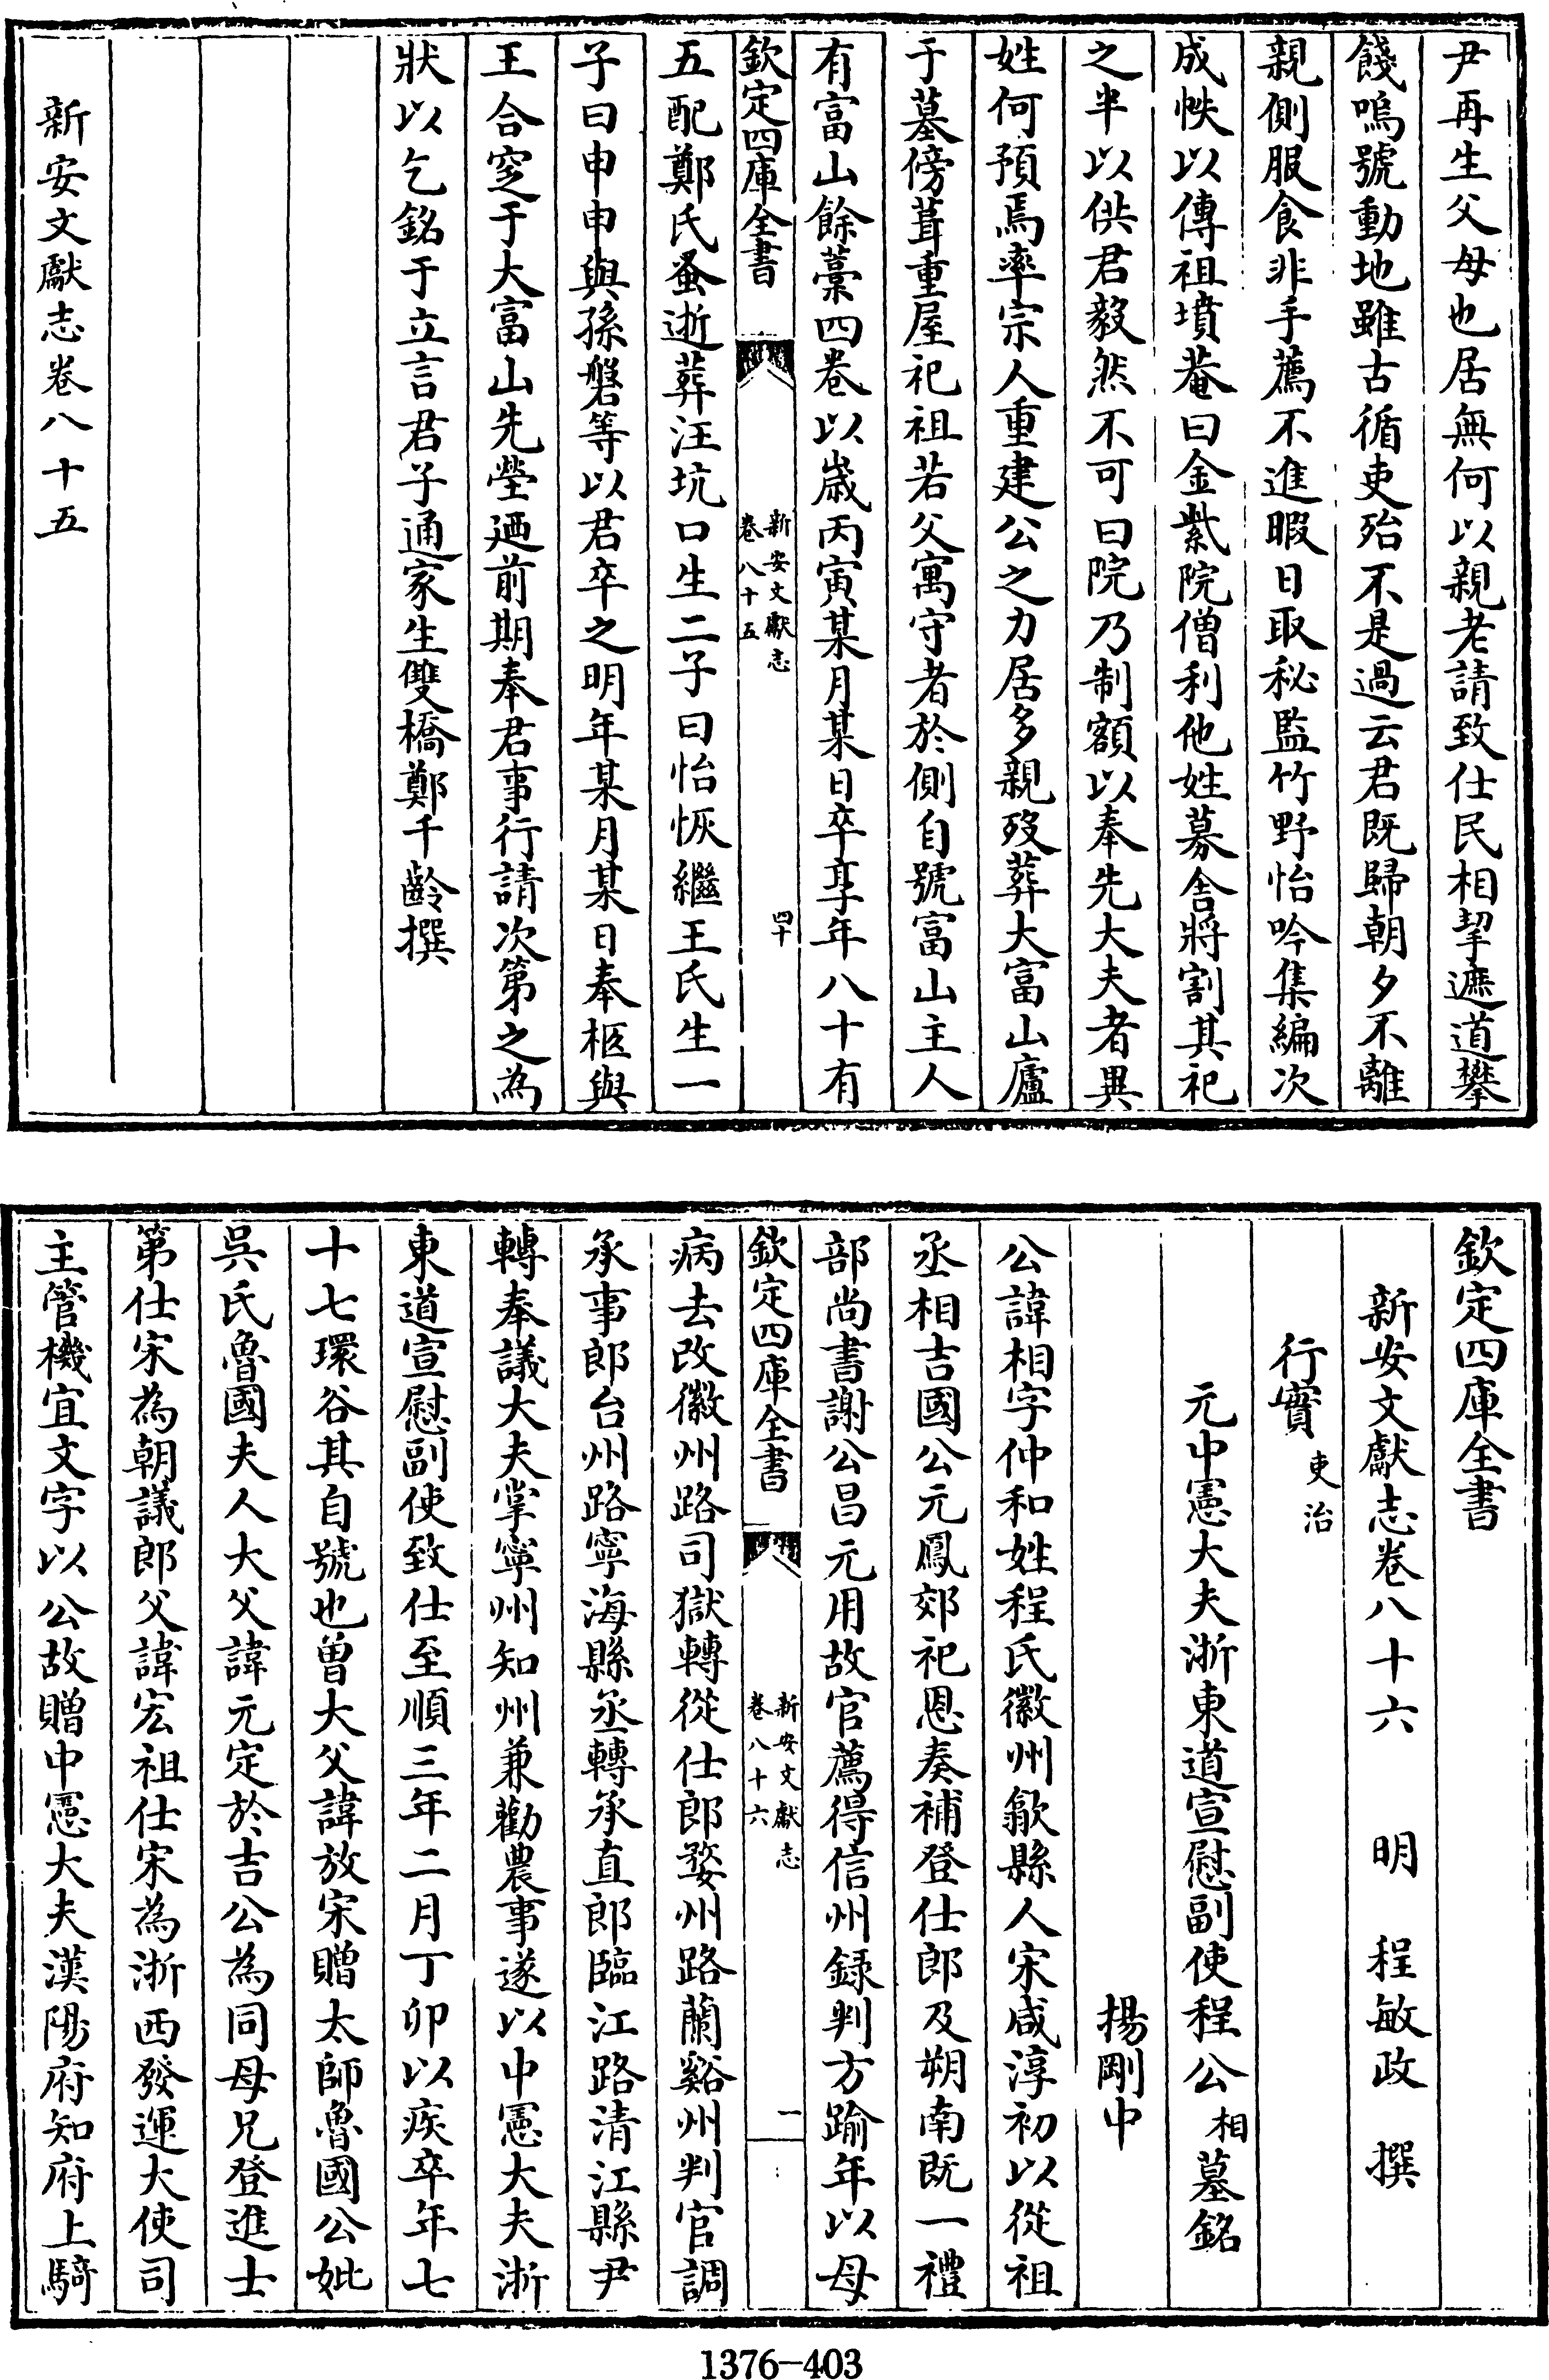 尹再生父母也居無何以親老請致仕民相挈遮道攀
餞嗚號動地雖古循吏殆不是過云君既歸朝夕不離
親側服食非手薦不進暇日取秘監竹野怡吟集編次
成帙以傳祖墳菴曰金紫院僧利他姓募舍將割其祀
之半以供君毅然不可曰院乃制額以奉先大夫者異
姓何預焉率宗人重建公之力居多親歿葬大富山廬
于墓傍葺重屋祀祖若父寓守者於側自號富山主人
有富山餘藁四卷以歲丙寅某月某日卒享年八十有
欽定四庫全書
新安文獻志
卷八十五
四十
五配鄭氏蚤逝葬汪坑口生二子曰怡恢繼王氏生一
子曰申申與孫磐等以君卒之明年某月某日奉柩與
王合窆于大富山先塋迺前期奉君事行請次第之為
狀以乞銘于立言君子通家生雙橋鄭千齡撰
新安文獻志卷八十五
欽定四庫全書
新安文獻志卷八十六 明 程敏政 撰
行實 吏治
元中憲大夫浙東道宣慰副使程公相墓銘
楊剛中
公諱相字仲和姓程氏徽州歙縣人宋咸淳初以從祖
丞相吉國公元鳳郊祀恩奏補登仕郎及朔南既一禮
部尚書謝公昌元用故官薦得信州録判方踰年以母
欽定四庫全書
新安文獻志
卷八十六
一
病去改徽州路司獄轉從仕郎婺州路蘭谿州判官調
承事郎台州路寧海縣丞轉承直郎臨江路清江縣尹
轉奉議大夫掌寧州知州兼勸農事遂以中憲大夫浙
東道宣慰副使致仕至順三年二月丁卯以疾卒年七
十七環谷其自號也曾大父諱放宋贈太師魯國公妣
吳氏魯國夫人大父諱元定於吉公為同母兄登進士
第仕宋為朝議郎父諱宏祖仕宋為浙西發運大使司
主管機宜文字以公故贈中憲大夫漢陽府知府上騎
1376-403